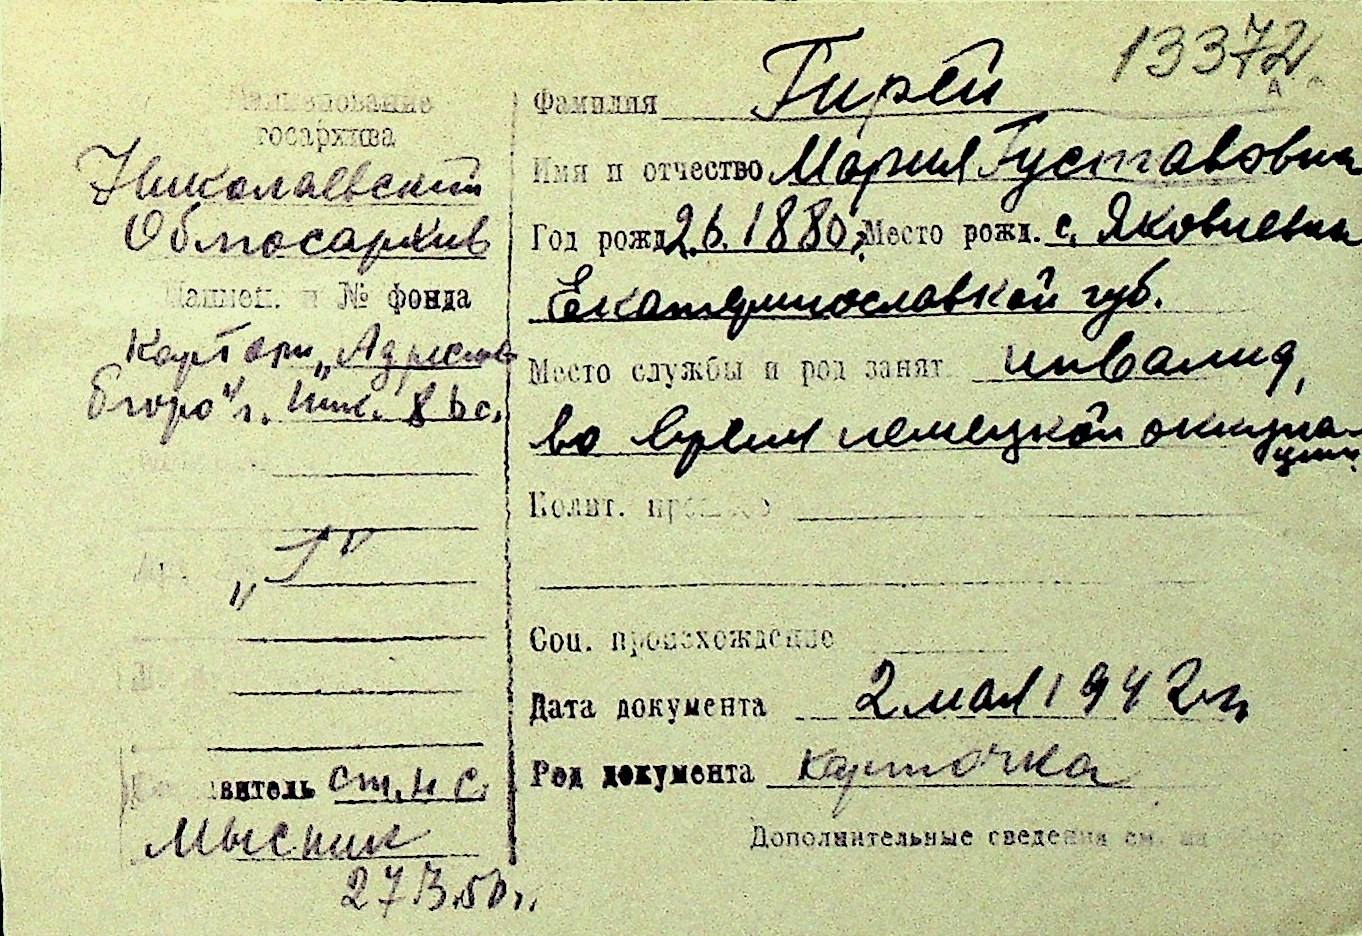 13372
А
Наименование
госархива
Николаевский
Облгосархив
Наимен. и № фонда
Картотек „Адресное
бюро" г. Ник.
„Г"
витель ст. н с.
Мысник
27
Фамилия Гирей
Имя и отчество Мария Густавовна
Год рожд 2.6.1880 г. Место рожд. с. Яковлевка
Екатеринославской губ.
Место службы и род занят инвалид,
во время немецкой оккупа-
ции.
Полит.
Соц. происхождение
Дата документа 2 мая 1942 г.
Род документа карточка
Дополнительные сведения см. на